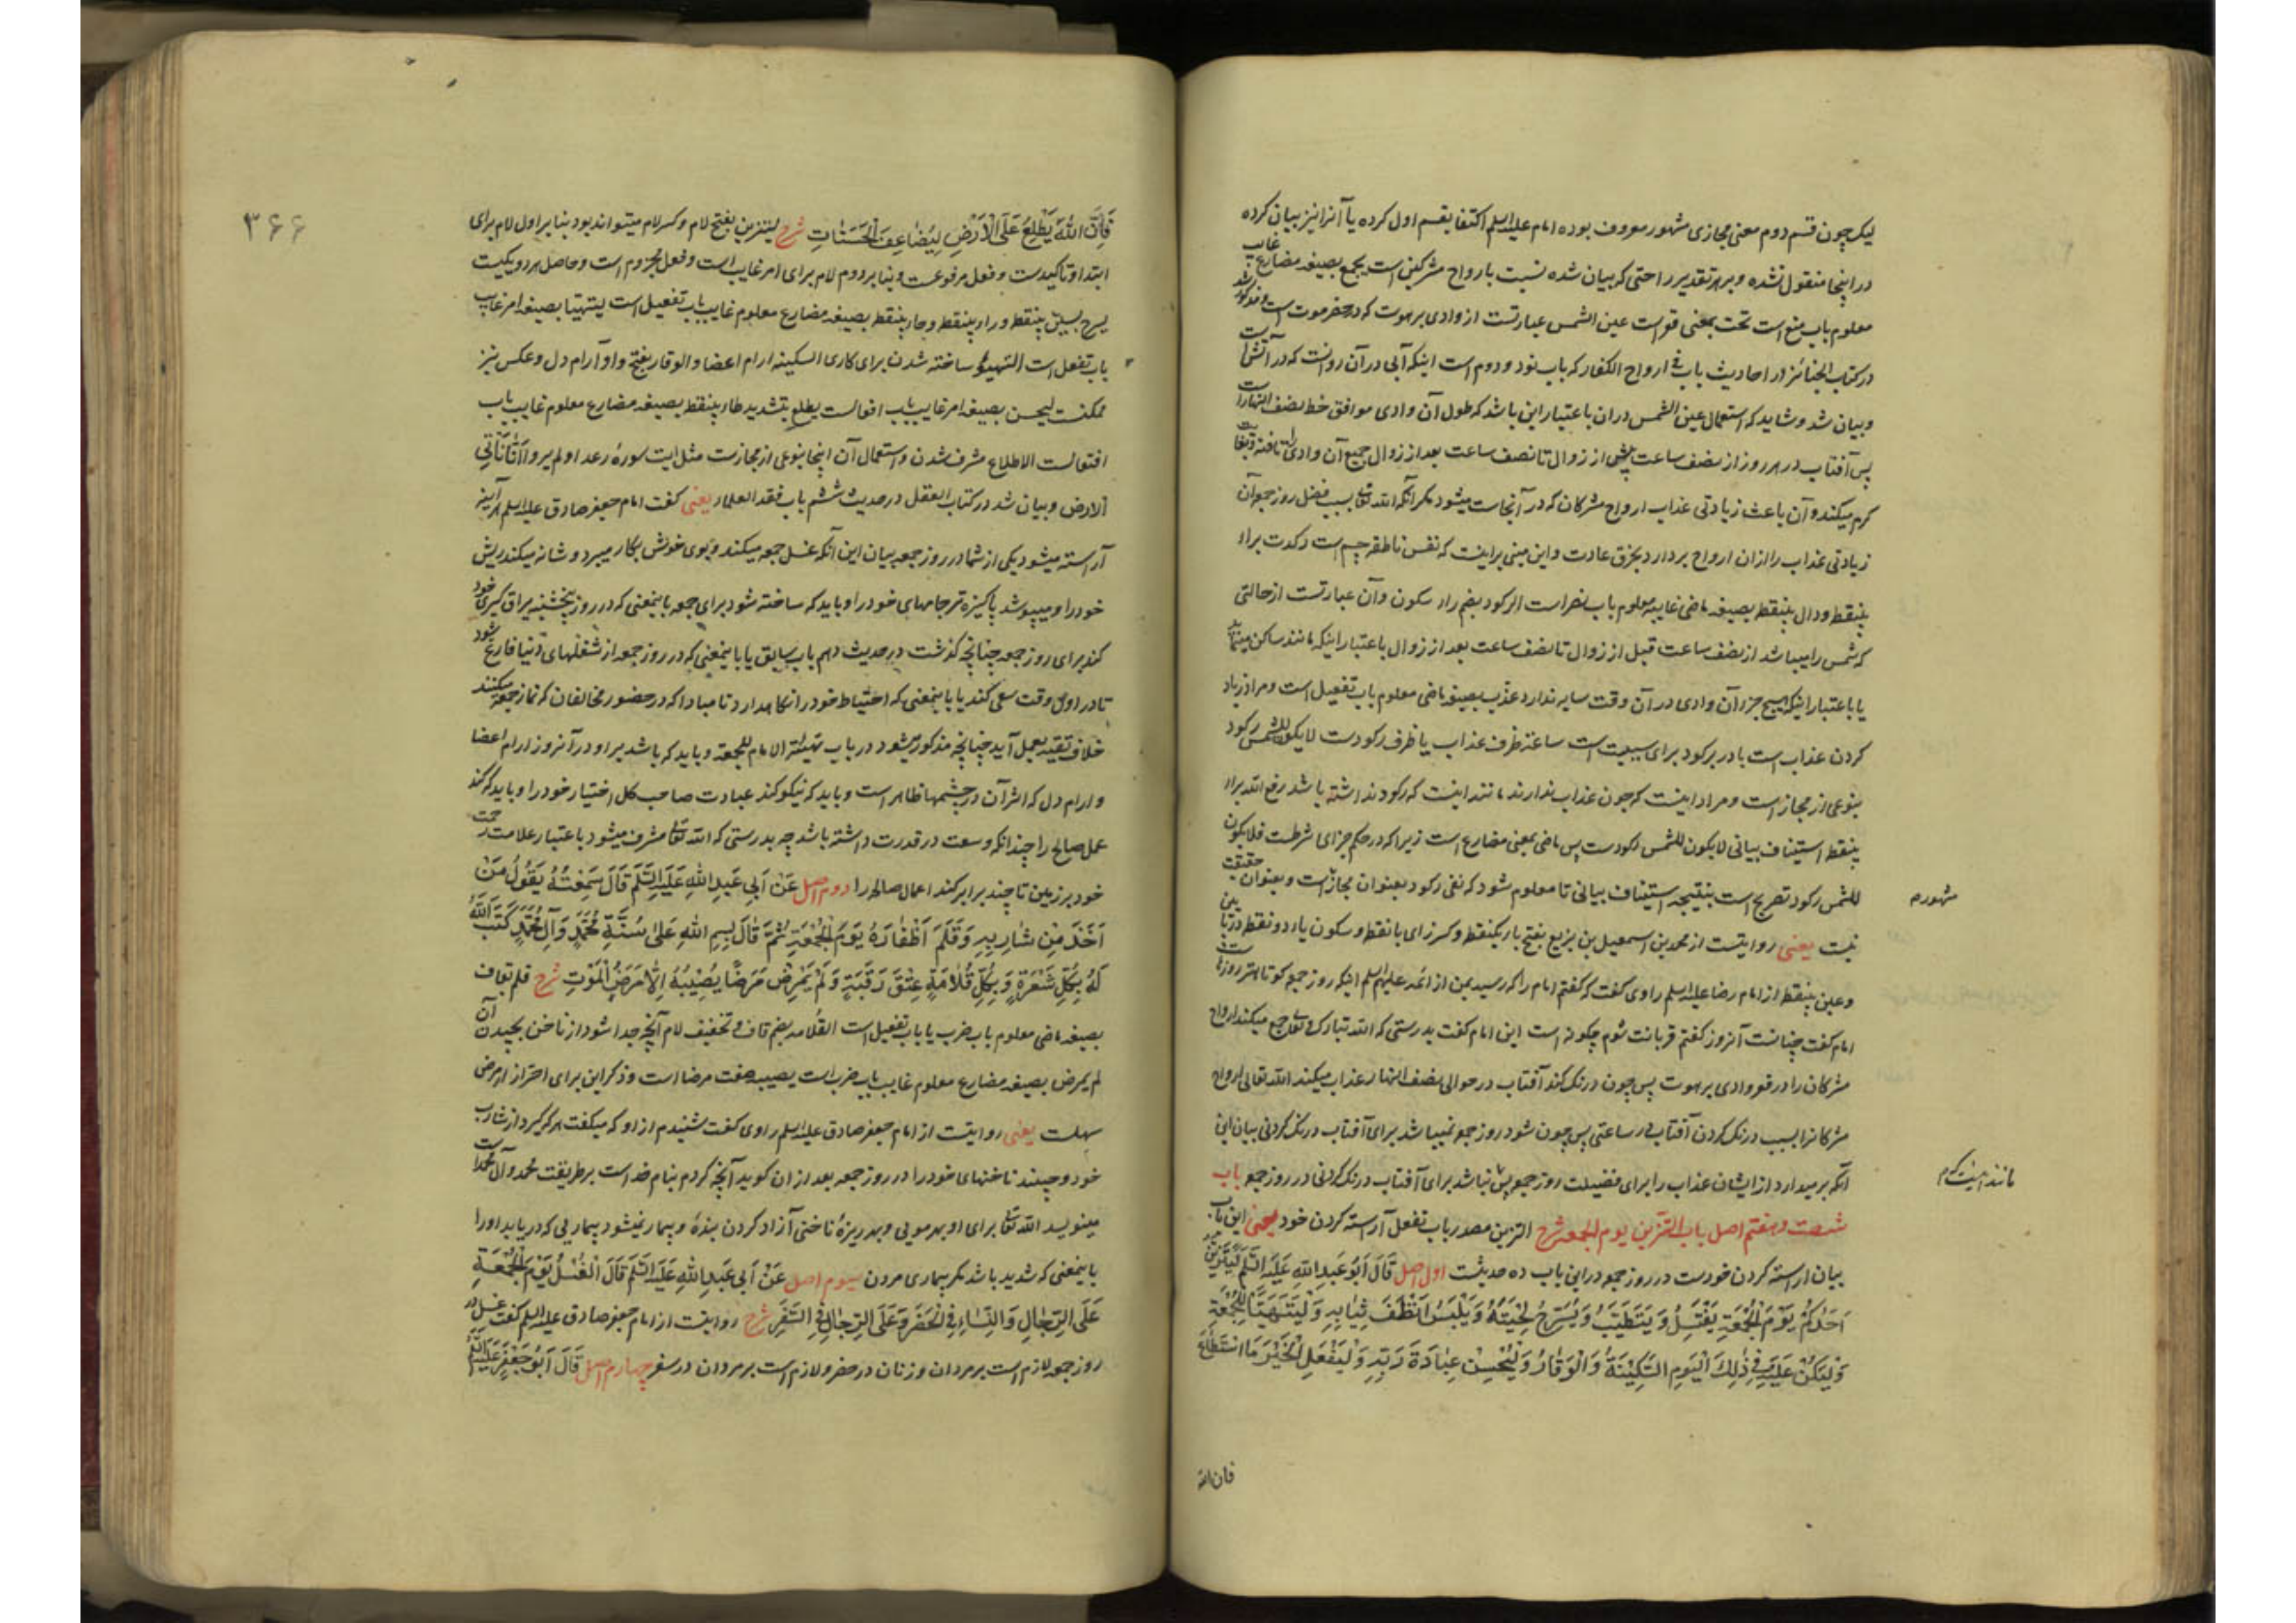 لیک چون قسم دوم معنی مجازی مشهور معروف بوده امام علیه السلم اکتفا بقسم اول کرده یا آنرا نیز بیان کرده
در اینجا منقول نشده و بر هر تقدیر راحتی که بیان شده نسبت بارواح مشرکین است یجمع بصیغه مضارع غایب
معلوم باب منع است تحت بمعنی قو است عین الشمس عبارتست از وادی برهوت که در حضرموت است و مذکور شد
در کتاب الجنائز در احادیث باب فی ارواح الکفار که باب نود و دوم است اینکه آبی در آن روانست که در آتش است
و بیان شد و شاید که استعمال عین الشمس دران باعتبار این باشد که طول آن وادی موافق خط نصف النهار است
پس آفتاب در هر روز از نصف ساعت پیش از زوال تا نصف ساعت بعد از زوال جمیع آن وادی را تافته
کرم میکند و آن باعث زیادتی عذاب ارواح مشرکان که در آنجاست میشود مکر آنکه الله تعالی بسبب فضل روز جمعه آن
زیادتی عذاب را ازان ارواح بردارد بخرق عادت و این مبنی بر اینست که نفس ناطقه جسم است رکدت براء
بینقطه و دال بینقطه بصیغه ماضی غایبه معلوم باب نصر است الرکود بضم راء سکون و آن عبارتست از حالتی
که شمس را میباشد از نصف ساعت قبل از زوال تا نصف ساعت بعد از زوال باعتبار اینکه مانند ساکن مینماید
یا باعتبار اینکه هیچ جزء آن وادی در آن وقت سایه ندارد عذب بصیغه ماضی معلوم باب تفعیل است و مراد زیاد
کردن عذاب است با در برکود برای سببیت است ساعة ظرف عذاب یا ظرف رکودست لا یکون للشمس رکود
بنوعی از مجاز است و مراد اینست که چون عذاب ندارند مانند اینست که رکود نداشته باشد رفع الله براء
بینقطه استیناف بیانی لا یکون للشمس رکودست پس ماضی بمعنی مضارع است زیرا که در حکم جزای شرطست فلا یکون
للشمس رکود تصریح است بنتیجه استیناف بیانی تا معلوم شود که نفی رکود بعنوان مجاز است و بعنوان حقیقت
نیست یعنی روایتست از محمد بن اسمعیل بن بزیع بفتح باء یکنقطه و کسر زای با نقطه و سکون یاء دو نقطه در پایین
و عین بینقطه از امام رضا علیه السلم راوی گفت که کفتم امام را که رسید بمن از ائمه علیهم السلم اینکه روز جمعه کوتاهتر روزهاست
امام کفت چنانست آنروز کفتم قربانت شوم چکونه است این امام کفت بدرستی که الله تبارک و تعالی جمع میکند ارواح
مشرکان را در قو وادی برهوت پس چون درنک کند آفتاب در حوالی نصف النهار عذاب میکند الله تعالی ارواح
مشرکانرا بسبب درنک کردن آفتاب در ساعتی پس چون شود روز جمعه نمیباشد برای آفتاب درنک کردنی بیان این
آنکه برمیدارد از ایشان عذاب را برای فضیلت روز جمعه پس نباشد برای آفتاب درنک کردنی در روز جمعه باب
شصت و هفتم اصل باب التزین یوم الجمعه شرح التزین مصدر باب تفعل آرسته کردن خود یعنی این باب
بیان ارسته کردن خودست در روز جمعه در این باب ده حدیثست اول اصل قَالَ اَبُو عَبدِ اللهِ عَلَیهِ السَّلَم لِیَتَزَیَّن
اَحَدُکُم یَوْمَ الْجُمُعَةِ یَغْتَسِلُ وَ یَتَطَیَّبُ وَ یُسَرِّحُ لِحْیَتَهُ وَ یَلْبَسُ اَنْظَفَ ثِیَابِهِ وَ لْیَتَهَیَّأ لِلْجُمُعَةِ
وَ لْیَکُنْ عَلَیهِ فِی ذٰلِکَ الْیَومِ السَّکِینَةُ وَ الْوَقَارُ وَ لْیُحْسِنْ عِبَادَةَ رَبِّهِ وَ لْیَفْعَلِ الْخَیْرَ مَا اسْتَطَاعَ
فان الله
مشهوره م
مانند اینست که م
۳۶۶
فَاِنَّ اللهَ یَطَّلِعُ عَلَی الْاَرْضِ لِیُضَاعِفَ الْحَسَنَاتِ شرح لیتزین بفتح لام و کسر لام میتواند بود بنا بر اول لام برای
ابتدا و تاکیدست و فعل مرفوعست و بنا بر دوم لام برای امر غایب است و فعل مجزوم است و حاصل هر دو یکیست
یسرح بسین بینقطه و راء بینقطه و حاء بینقطه بصیغه مضارع معلوم غایب باب تفعیل است لیتهیا بصیغه امر غایب
باب تفعل است التهیؤ ساخته شدن برای کاری السکینه ارام اعضا و الوقار بفتح واو آرام دل و عکس نیز
ممکنست لیحسن بصیغه امر غایب باب افعالست یطلع بتشدید طاء بینقطه بصیغه مضارع معلوم غایب باب
افتعالست الاطلاع مشرف شدن و استعمال آن اینجا بنوعی از مجازست مثل ایت سورۀ رعد اولم یروا انا ناتی
الارض و بیان شد در کتاب العقل در حدیث ششم باب فقد العلماء یعنی کفت امام جعفر صادق علیه السلم هر آینه
آراسته میشود یکی از شما در روز جمعه بیان این آنکه غسل جمعه میکند و بوی خوش بکار میبرد و شانه میکند ریش
خود را و میپوشد پاکیزه تر جامهای خود را و باید که ساخته شود برای جمعه باینمعنی که در روز پنجشنبه یراق کیری خود
کند برای روز جمعه چنانچه کذشت در حدیث دهم باب سابق یا باینمعنی که در روز جمعه از شغلهای دنیا فارغ شود
تا در اول وقت سعی کند یا باینمعنی که احتیاط خود را نکاه دارد تا مبادا که در حضور مخالفان که نماز جمعه میکنند
خلاف تقیه بعمل آید چنانچه مذکور میشود در باب تهیئة الامام للجمعة و باید که باشد بر او در آنروز ارام اعضا
و ارام دل که اثر آن در چشمها ظاهر است و باید که نیکو کند عبادت صاحب کل اختیار خود را و باید که کند
عمل صالح را چندانکه وسعت در قدرت داشته باشد چه بدرستی که الله تعالی مشرف میشود باعتبار علامت رحمت
خود بر زمین تا چند برابر کند اعمال صالحه را دوم اصل عَنْ اَبِی عَبدِ اللهِ عَلَیهِ السَّلَم قَالَ سَمِعْتُهُ یَقُولُ مَنْ
اَخَذَ مِنْ شَارِبِهِ وَ قَلَّمَ اَظْفَارَهُ یَوْمَ الْجُمُعَةِ ثُمَّ قَالَ بِسمِ اللهِ عَلٰی سُنَّةِ مُحَمَّدٍ وَ آلِ مُحَمَّدٍ کَتَبَ اللهُ
لَهُ بِکُلِّ شَعْرَةٍ وَ بِکُلِّ قُلَامَةٍ عِتْقَ رَقَبَةٍ وَ لَمْ یَمْرَضْ مَرَضًا یُصِیبُهُ اِلَّا مَرَضُ الْمَوْتِ شرح قلم بقاف
بصیغه ماضی معلوم باب ضرب یا باب تفعیل است القلامه بضم قاف و تخفیف لام آنچه جدا شود از ناخن بچیدن آن
لم یمرض بصیغه مضارع معلوم غایب باب ضرب است یصیبه صفت مرضا است و ذکر این برای احتراز از مرض
سهلست یعنی روایتست از امام جعفر صادق علیه السلم راوی کفت شنیدم از او که میکفت هر که کیرد از شارب
خود و چیند ناخنهای خود را در روز جمعه بعد از ان کوید آنچه کردم بنام خداست بر طریقت محمد و آل محمد است
مینویسد الله تعالی برای او بهر مویی و بهر ریزۀ ناخنی آزاد کردن بندۀ و بیمار نمیشود بیماریی که دریابد او را
باینمعنی که شدید باشد مکر بیماری مردن سیوم اصل عَنْ اَبِی عَبدِ اللهِ عَلَیهِ السَّلَم قَالَ الْغُسْلُ یَوْمَ الْجُمُعَةِ
عَلَی الرِّجَالِ وَ النِّسَاءِ فِی الْحَضَرِ وَ عَلَی الرِّجَالِ فِی السَّفَرِ شرح روایتست از امام جعفر صادق علیه السلم کفت غسل در
روز جمعه لازم است بر مردان و زنان در حضر و لازم است بر مردان در سفر چهارم اصل قَالَ اَبُو جَعْفَرٍ عَلَیهِ السَّلَم